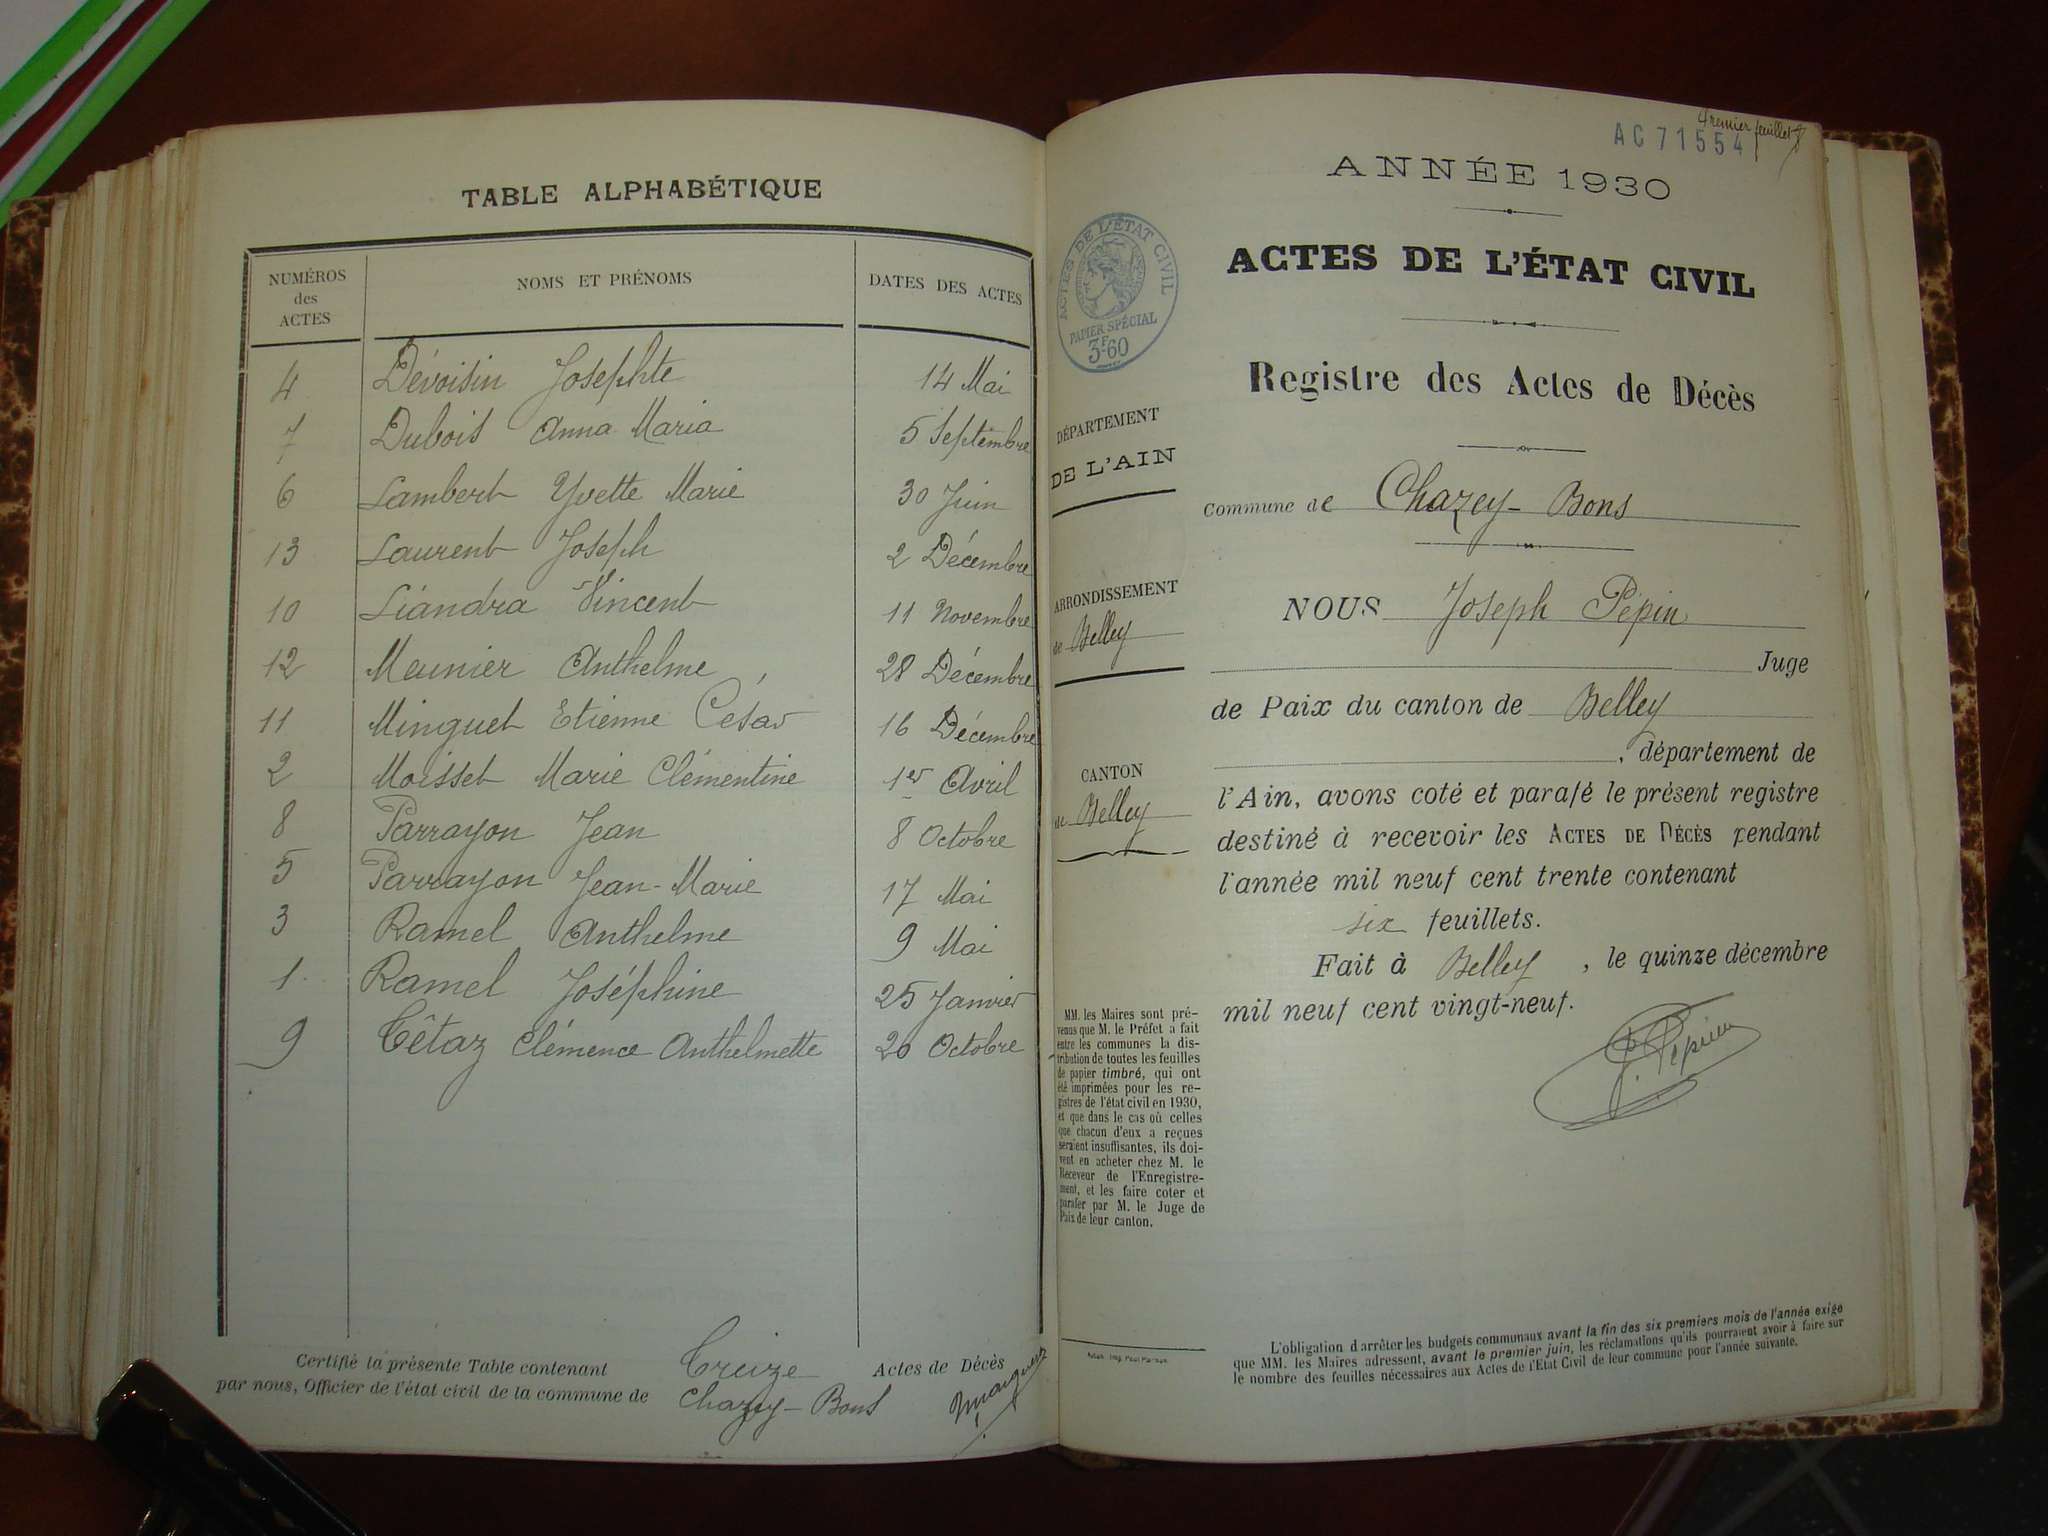 TABLE ALPHABÉTIQUE
NUMÉROS des ACTES NOMS ET PRÉNOMS DATES DES ACTES
4 Dévoisin Josephte 14 Mai
7 Dubois Anna Maria 5 Septembre
6 Lambert Yvette Marie 30 Juin
13 Laurent Joseph 2 Décembre
10 Liandra Vincent 11 Novembre
12 Meunier Anthelme 28 Décembre
11 Minguet Etienne César 16 Décembre
2 Moisset Marie Clémentine 1er Avril
8 Parrayon Jean 8 Octobre
5 Parrayon Jean-Marie 17 Mai
3 Ramel Anthelme 9 Mai
1 Ramel Joséphine 25 Janvier
9 Têtaz Clémence Anthelmette 20 Octobre
Certifié la présente Table contenant Treize Actes de Décès
par nous, Officier de l'état civil de la commune de Chazey-Bons
premier feuillet
AC 71554
ANNÉE 1930
ACTES DE L'ÉTAT CIVIL
PAPIER SPÉCIAL
3F-60
ACTES DE L'ÉTAT CIVIL
Registre des Actes de Décès
DÉPARTEMENT
DE L'AIN
Commune de Chazey-Bons
ARRONDISSEMENT
de Belley
NOUS Joseph Pépin
Juge
de Paix du canton de Belley
, département de
CANTON
de Belley
l'Ain, avons coté et parafé le présent registre
destiné à recevoir les ACTES DE DÉCÈS pendant
l'année mil neuf cent trente contenant
six feuillets.
Fait à Belley, le quinze décembre
mil neuf cent vingt-neuf.
J. Pépin
MM. les Maires sont pré-
venus que M. le Préfet a fait
entre les communes la dis-
tribution de toutes les feuilles
de papier timbré, qui ont
été imprimées pour les re-
gistres de l'état civil en 1930,
et que dans le cas où celles
que chacun d'eux a reçues
seraient insuffisantes, ils doi-
vent en acheter chez M. le
Receveur de l'Enregistre-
ment, et les faire coter et
parafer par M. le Juge de
Paix de leur canton.
L'obligation d'arrêter les budgets communaux avant la fin des six premiers mois de l'année exige
que MM. les Maires adressent, avant le premier juin, les réclamations qu'ils pourraient avoir à faire sur
le nombre des feuilles nécessaires aux Actes de l'État Civil de leur commune pour l'année suivante.